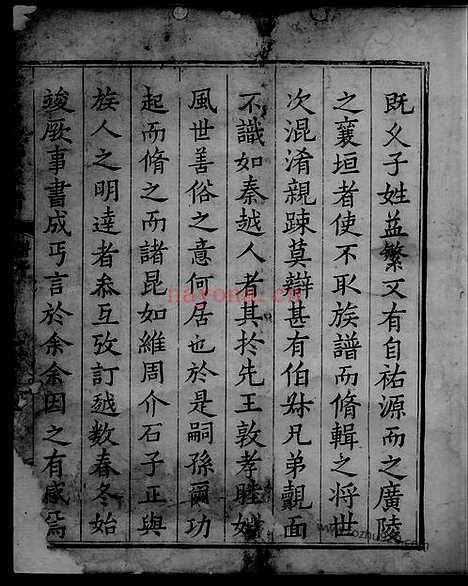 既久子姓益繁又有自祐源而之廣陵
之襄垣者使不取族譜而脩輯之将世
次混淆親踈莫辯甚有伯叔兄弟覿面
不識如秦越人者其扵先王敦孝睦婣
風世善俗之意何居也於是嗣孫爾功
起而脩之而諸昆如維周介石子正與
族人之明達者叅互攷訂越數春冬始
竣厥事書成丐言於余余因之有感焉
nayona.cn